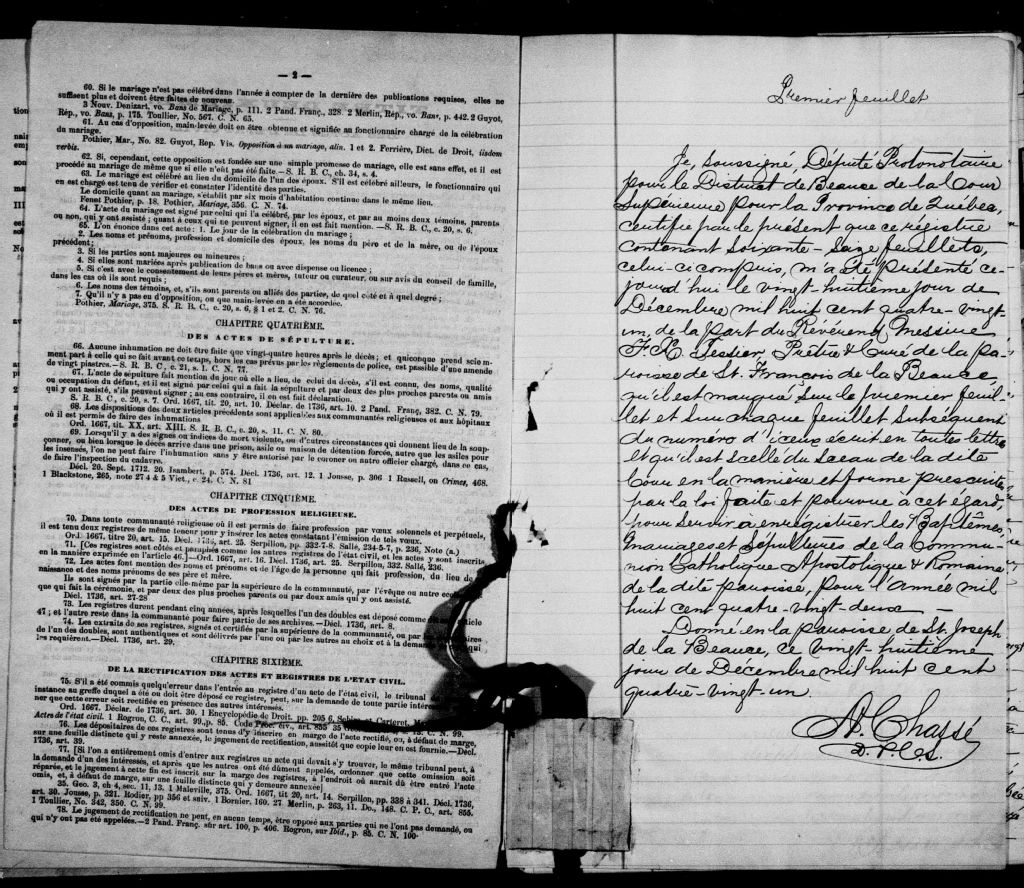 — 2 —
60. Si le mariage n'est pas célébré dans l'année à compter de la dernière des publications requises, elles ne
suffisent plus et doivent être faites de nouveau.
3 Nouv. Denizart, vo. Bans de Mariage, p. 111. 2 Pand. Franç., 328. 2 Merlin, Rép., vo. Bans, p. 442. 2 Guyot,
Rép., vo. Bans, p. 175. Toullier, No. 567. C. N. 65.
61. Au cas d'opposition, main-levée doit en être obtenue et signifiée au fonctionnaire chargé de la célébration
du mariage.
Pothier, Mar., No. 82. Guyot, Rep. Vis. Opposition à un mariage, alin. 1 et 2. Ferrière, Dict. de Droit, iisdem
verbis.
62. Si, cependant, cette opposition est fondée sur une simple promesse de mariage, elle est sans effet, et il est
procédé au mariage de même que si elle n'eut pas été faite.—S. R. B. C., ch. 34, s. 4.
63. Le mariage est célébré au lieu du domicile de l'un des époux. S'il est célébré ailleurs, le fonctionnaire qui
en est chargé est tenu de vérifier et constater l'identité des parties.
Le domicile quant au mariage, s'établit par six mois d'habitation continue dans le même lieu.
Fenet Pothier, p. 18. Pothier, Mariage, 356. C. N. 74.
64. L'acte du mariage est signé par celui qui l'a célébré, par les époux, et par au moins deux témoins, parents
ou non, qui y ont assisté ; quant à ceux qui ne peuvent signer, il en est fait mention. —S. R. B. C., c 20, s. 6.
65. L'on énonce dans cet acte : 1. Le jour de la célébration du mariage ;
2. Les noms et prénoms, profession et domicile des époux, les noms du père et de la mère, ou de l'époux
précédent ;
3. Si les parties sont majeures ou mineures ;
4. Si elles sont mariées après publication de bans ou avec dispense ou licence ;
5. Si c'est avec le consentement de leurs pères et mères, tuteur ou curateur, ou sur avis du conseil de famille,
dans les cas où ils sont requis ;
6. Les noms des témoins, et, s'ils sont parents ou alliés des parties, de quel côté et à quel degré ;
7. Qu'il n'y a pas eu d'opposition, ou que main-levée en a été accordée.
Pothier, Mariage, 375. S. R. B. C., c. 20, s. 6, § 1 et 2. C. N. 76.
CHAPITRE QUATRIÈME.
DES ACTES DE SÉPULTURE.
66. Aucune inhumation ne doit être faite que vingt-quatre heures après le décès ; et quiconque prend sciem-
ment part à celle qui se fait avant ce temps, hors les cas prévus par les règlements de police, est passible d'une amende
de vingt piastres.—S. R. B. C., c. 21, s. 1. C. N. 77.
67. L'acte de sépulture fait mention du jour où elle a lieu, de celui du décès, s'il est connu, des noms, qualité
ou occupation du défunt, et il est signé par celui qui a fait la sépulture et par deux des plus proches parents ou amis
qui y ont assisté, s'ils peuvent signer ; au cas contraire, il en est fait déclaration.
S. R. B. C., c. 20, s. 7. Ord. 1667, tit. 20, art. 10. Déclar. de 1736, art. 10. 2 Pand. Franç, 382. C. N. 79.
68. Les dispositions des deux articles précédents sont applicables aux communautés religieuses et aux hôpitaux
où il est permis de faire des inhumations.
Ord. 1667, tit. XX, art. XIII. S. R. B. C., c. 20, s. 11. C. N. 80.
69. Lorsqu'il y a des signes ou indices de mort violente, ou d'autres circonstances qui donnent lieu de la soup-
çonner, ou bien lorsque le décès arrive dans une prison, asile ou maison de détention forcée, autre que les asiles pour
les insensés, l'on ne peut faire l'inhumation sans y être autorisé par le coroner ou autre officier chargé, dans ce cas,
de faire l'inspection du cadavre.
Décl. 20. Sept. 1712. 20. Isambert, p. 574. Décl. 1736, art. 12. 1 Jousse, p. 306 1 Russell, on Crimes, 468.
1 Blackstone, 265, note 27 4 & 5 Vict., c. 24. C. N. 81
CHAPITRE CINQUIÈME.
DES ACTES DE PROFESSION RELIGIEUSE.
70. Dans toute communauté religieuse où il est permis de faire profession par vœux solennels et perpétuels,
il est tenu deux registres de même teneur pour y insérer les actes constatant l'émission de tels vœux.
Ord. 1667, titre 20, art. 15. Décl. 1736, art. 25. Serpillon, pp. 332-7-8. Sallé, 234-5-7, p. 236, Note (a.)
71. [Ces registres sont cotés et paraphés comme les autres registres de l'état civil, et les actes y sont inscrits
en la manière exprimée en l'article 46.]—Ord. 1667, art. 16. Décl. 1736, art. 25. Serpillon, 332. Sallé, 236.
72. Les actes font mention des noms et prénoms et de l'âge de la personne qui fait profession, du lieu de
naissance et des noms prénoms de ses père et mère.
Ils sont signés par la partie elle-même par la supérieure de la communauté, par l'évêque ou autre
que qui fait la cérémonie, et par deux des plus proches parents ou par deux amis qui y ont assisté.
Décl. 1736, art. 27-28
73. Les registres durent pendant cinq années, après lesquelles l'un des doubles est déposé comme
47 ; et l'autre reste dans la communauté pour faire partie de ses archives.—Décl. 1736, art. 8.
74. Les extraits de ses registres, signés et certifiés par la supérieure de la communauté, ou par
de l'un des doubles, sont authentiques et sont délivrés par l'une ou par les autres au choix et à la demande qui
les requièrent.—Décl. 1736, art. 29.
CHAPITRE SIXIÈME.
DE LA RECTIFICATION DES ACTES ET REGISTRES DE L'ETAT CIVIL.
75. S'il a été commis quelqu'erreur dans l'entrée au registre d'un acte de l'état civil, le tribunal
instance au greffe duquel a été ou doit être déposé ce registre, peut, sur la demande de toute partie intéres
ner que cette erreur soit rectifiée en présence des autres intéressés.
Ord. 1667. Déclar. de 1736, art. 30. 1 Encyclopédie de Droit, pp. 205 6,
Actes de l'état civil. 1 Rogron, C. C., art. 99, p. 85. Code Proc. civ., art. 855 C. N. 99.
76. Les dépositaires de ces registres sont tenus d'y inscrire en marge de l'acte rectifié, ou, à défaut de marge,
sur une feuille distincte qui y reste annexée, le jugement de rectification, aussitôt que copie leur en est fournie.—Décl.
1736, art. 39.
77. [Si l'on a entièrement omis d'entrer aux registres un acte qui devait s'y trouver, le même tribunal peut, à
la demande d'un des intéressés, et après que les autres ont été dûment appelés, ordonner que cette omission soit
réparée, et le jugement à cette fin est inscrit sur la marge des registres, à l'endroit où aurait dû être entré l'acte
omis, et, à défaut de marge, sur une feuille distincte qui y demeure annexée]
35. Geo. 3, ch 4, sec. 11, 13. 1 Maleville, 375. Ord. 1667, tit 20, art. 14. Serpillon, pp. 338 à 341. Décl. 1736,
art. 30. Jousse, p. 321. Rodier, pp 356 et suiv. 1 Bornier. 160. 27. Merlin, p. 263, 11. Do., 148. C. P. C., art. 855.
1 Toullier, No. 342, 350. C. N. 99.
78. Le jugement de rectification ne peut, en aucun temps, être opposé aux parties qui ne l'ont pas demandé, ou
qui n'y ont pas été appelées.—2 Pand. Franç. sur art. 100, p. 406. Rogron, sur Ibid., p. 85. C. N. 100.
Premier feuillet
Je, soussigné, Député Protonotaire
pour le District de Beauce de la Cour
Supérieure pour la Province de Québec,
certifie par le présent que ce régistre
contenant Soixante-Seize feuillets,
celui-ci compris, m'a été présenté ce-
jourd'hui le vingt-huitième jour de
Décembre mil huit cent quatre-vingt-
un, de la part du Révérend Messire
F. X. Tessier, Prêtre & Curé de la pa-
roisse de St. François de la Beauce,
qu'il est marqué sur le premier feuil-
let et sur chaque feuillet subséquent
du numéro d'iceux écrit en toutes lettres
et qu'il est scellé du sceau de la dite
Cour en la manière et forme prescrites
par la loi faite et pourvue à cet égard,
pour servir à enrégistrer les Baptêmes,
Mariages et Sépultures de la Commu-
nion Catholique Apostolique & Romaine
de la dite paroisse, pour l'année mil
huit cent quatre-vingt-deux —
Donné en la paroisse de St. Joseph
de la Beauce, ce vingt-huitième
jour de Décembre mil huit cent
quatre-vingt-un.
A. Chassé
D. P. C. S.